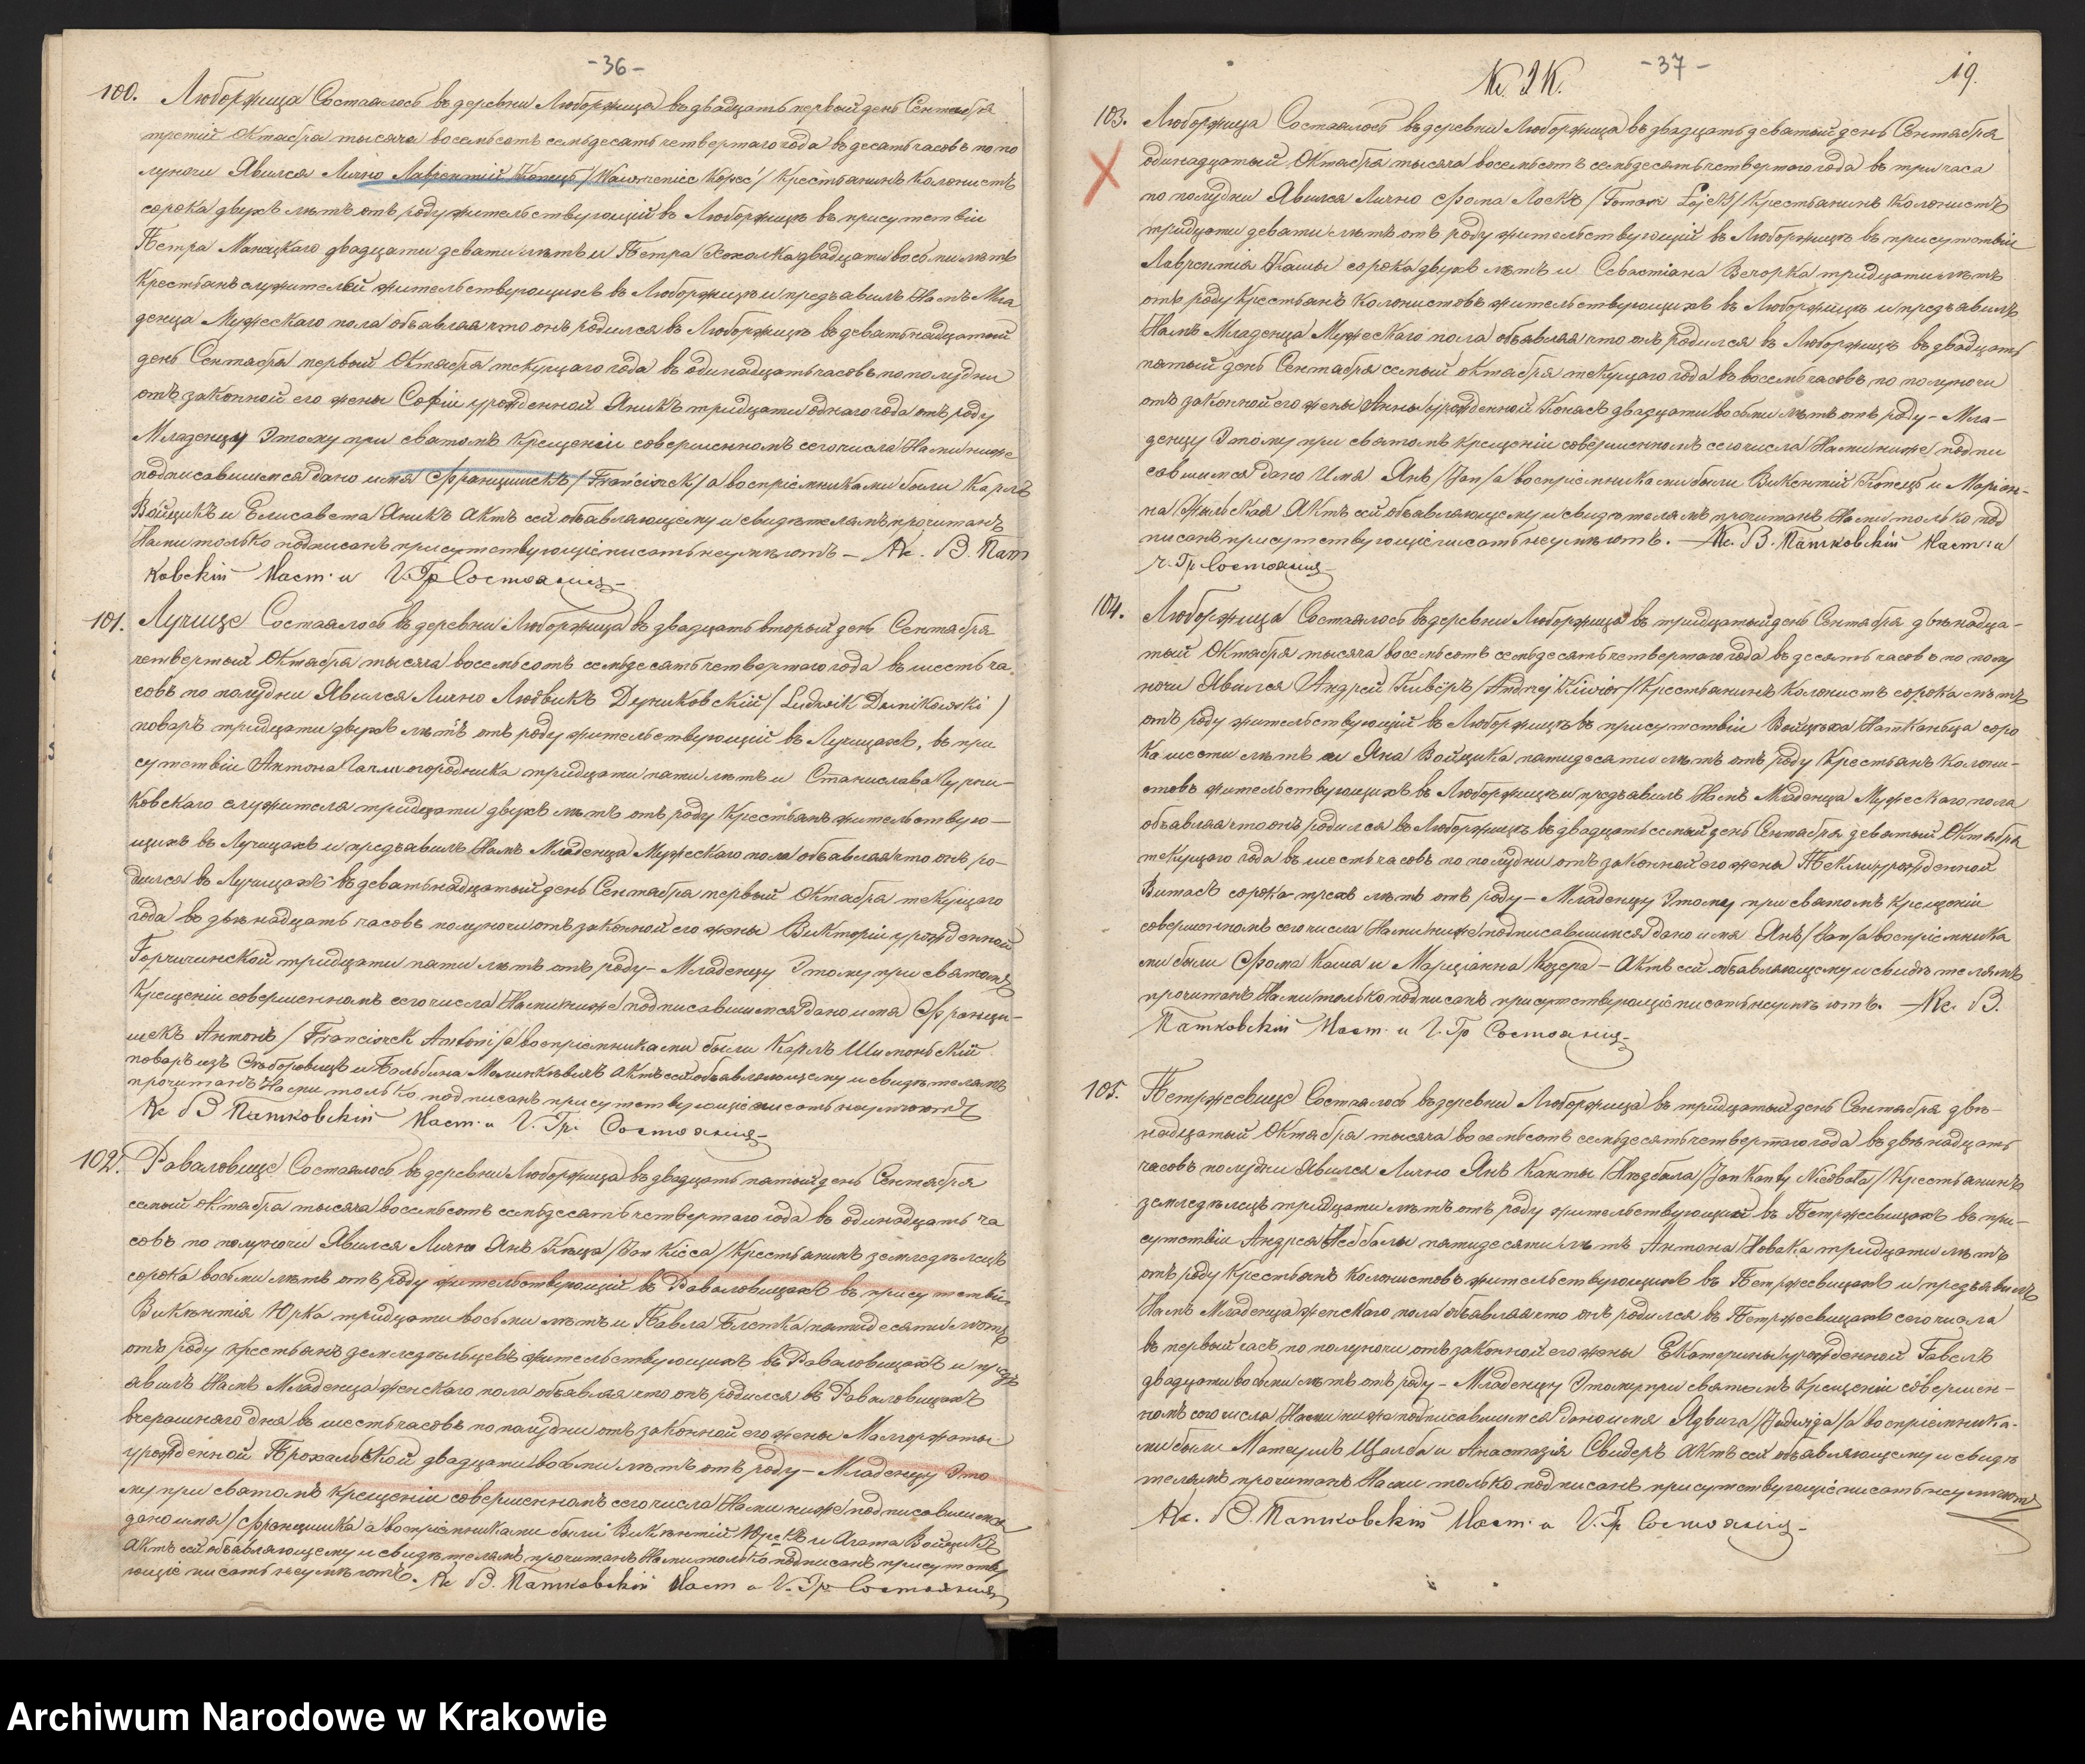 -36-
100. Люборжица Состоялось въ деревни Люборжица въ двадцать первый день Сентября
третій Октября тысяча восемьсотъ семьдесятъ четвертаго года въ десять часовъ по по
луночи Явился Лично Лаврентій Конецъ / Wawrzeniec Kopeć / Крестьянинъ Колонистъ
сорока двухъ лѣтъ отъ роду жительствующій въ Люборжицѣ въ присутствіи
Петра двадцати девяти лѣтъ и Петра двадцати восьми лѣтъ
Крестьянъ служителей жительствующихъ въ Люборжицѣ и предъявилъ Намъ Мла
денца Мужескаго пола объявляя что онъ родился въ Люборжицѣ въ девятнадцатый
день Сентября первый Октября текущаго года въ одинадцать часовъ по полудни
отъ законной его жены Софіи урожденной Яникъ тридцати одного года отъ роду
Младенцу Этому при святомъ Крещеніи совершенномъ сего числа Нами ниже
подписавшимся дано имя Францишекъ / Franciszek / а воспріемниками были Карлъ
Войцикъ и Елисавета Яникъ Актъ сей объявляющему и свидѣтелямъ прочитанъ
Нами только подписанъ присутствующіе писать неумѣютъ - Кс. В. Пат
ковскій Наст. и Ч. Гр Состоянія
101. Лучице Состоялось въ деревни Люборжица въ двадцать вторый день Сентября
четвертый Октября тысяча восемьсотъ семьдесятъ четвертаго года въ шесть ча
совъ по полудни Явился Лично Людвикъ Дуниковскій / Ludwik Dunikowski /
поваръ тридцати двухъ лѣтъ отъ роду жительствующій въ Лучицахъ, въ при
сутствіи Антона огородника тридцати пяти лѣтъ и Станислава
служителя тридцати двухъ лѣтъ отъ роду Крестьянъ жительствую-
щихъ въ Лучицахъ и предъявилъ Намъ Младенца Мужескаго пола объявляя что онъ ро-
дился въ Лучицахъ въ девятьнадцатый день Сентября первый Октября текущаго
года въ двѣнадцать часовъ полуночи отъ законной его жены Викторіи урожденной
Горчичинской тридцати пяти лѣтъ отъ роду - Младенцу Этому при святомъ
Крещеніи совершенномъ сего числа Нами ниже подписавшимся дано имя Франци-
шекъ Антонъ / Franciszek Antoni / а воспріемниками были Карлъ Шимонскій
поваръ изъ и Бальбина Актъ сей объявляющему и свидѣтелямъ
прочитанъ Нами только подписанъ присутствующіе писать неумѣютъ
Кс В Патковскій Наст. и Ч. Гр. Состоянія
102. Раваловице Состоялось въ деревни Люборжица въ двадцать пятый день Сентября
седмый Октября тысяча восемьсотъ семьдесятъ четвертаго года въ одинадцать ча
совъ по полуночи Явился Лично Янъ / Jan Kiéca / Крестьянинъ земледѣлецъ
сорока восьми лѣтъ отъ роду жительствующій въ Раваловицахъ въ присутствіи
Викентія Юрка тридцати восьми лѣтъ и Павла пятидесяти лѣтъ
отъ роду крестьянъ земледѣльцевъ жительствующихъ въ Раваловицахъ и предъ
явилъ Намъ Младенца женскаго пола объявляя что онъ родился въ Раваловицахъ
вчерашняго дня въ шесть часовъ по полудни отъ законной его жены Малгоржаты
урожденной двадцати восьми лѣтъ отъ роду - Младенцу Это
му при святомъ крещеніи совершенномъ сего числа Нами ниже подписавшимся
дано имя / Францишка а воспріемниками были Викентій Юрекъ и Агата Войцикъ
Актъ сей объявляющему и свидѣтелямъ прочитанъ Нами только подписанъ присутству
ющіе писать неумѣютъ. Кс В. Патковскій Наст и Ч. Гр. Состоянія
-37-
19.
103. Люборжица Состоялось въ деревни Люборжица въ двадцать девятый день Сентября
одинадцатый Октября тысяча восемьсотъ семьдесятъ четвертаго года въ три часа
по полудни Явился Лично Фома Лоекъ / Tomasz Łojek / Крестьянинъ Колонистъ
тридцати девяти лѣтъ отъ роду жительствующій въ Люборжицѣ въ присутствіи
Лаврентія Кашы сорока двухъ лѣтъ и Севастіана Вечорка тридцати лѣтъ
отъ роду Крестьянъ Колонистовъ жительствующихъ въ Люборжицѣ и предъявилъ
Намъ Младенца Мужескаго пола объявляя что онъ родился въ Люборжицѣ въ двадцать
пятый день Сентября семый Октября текущаго года въ восемь часовъ по полуночи
отъ законной его жены Анны урожденной двадцати восьми лѣтъ отъ роду - Мла-
денцу Этому при святомъ крещеніи совершенномъ сего числа Нами ниже подпи
савшимся дано Имя Янъ / Jan / а воспріемниками были Викентій Конецъ и Маріан-
на Актъ сей объявляющему и свидѣтелямъ прочитанъ Нами только под
писанъ присутствующіе писать неумѣютъ. - Кс. В. Патковскій Наст. и
Ч. Гр Состоянія
104. Люборжица Состоялось въ деревни Люборжица въ тридцатый день Сентября двѣнадца-
тый Октября тысяча восемьсотъ семьдесятъ четвертаго года въ десять часовъ по полу
ночи Явился Андрей Кивёръ / Andrzej Kiwior / Крестьянинъ Колонистъ сорока лѣтъ
отъ роду жительствующій въ Люборжицѣ въ присутствіи Войцѣха соро
ка шести лѣтъ и Яна Войцика пятидесяти лѣтъ отъ роду Крестьянъ Колони-
стовъ жительствующихъ въ Люборжицѣ и предъявилъ Намъ Младенца Мужескаго пола
объявляя что онъ родился въ Люборжицѣ въ двадцать семый день Сентября девятый Октября
текущаго года въ шесть часовъ по полудни отъ законной его жены Теклы урожденной
Витасъ сорока трехъ лѣтъ отъ роду - Младенцу Этому при святомъ Крещеніи
совершенномъ сего числа Нами ниже подписавшимся дано имя Янъ / Jan / а воспріемника
ми были Фома Каша и Марціанна Козера - Актъ сей объявляющему и свидѣтелямъ
прочитанъ Нами только подписанъ присутствующіе писать неумѣютъ. - Кс. В.
Патковскій Наст. и Ч. Гр Состоянія
105. Петржеевице Состоялось въ деревни Люборжица въ тридцатый день Сентября двѣ-
надцатый Октября тысяча восемьсотъ семьдесятъ четвертаго года въ двѣнадцать
часовъ полудни Явился Лично Янъ Канты / Jan Kanty Niedbała / Крестьянинъ
земледѣлецъ тридцати лѣтъ отъ роду жительствующій въ Петржеевицахъ въ при-
сутствіи Андрея Недбалы пятидесяти лѣтъ Антона Новака тридцати лѣтъ
отъ роду Крестьянъ Колонистовъ жительствующихъ въ Петржеевицахъ и предъявилъ
Намъ Младенца женскаго пола объявляя что онъ родился въ Петржеевицахъ сего числа
въ первый часъ по полуночи отъ законной его жены Екатерины урожденной Гавелъ
двадцати восьми лѣтъ отъ роду - Младенцу Этому при святомъ Крещеніи совершен-
номъ сего числа Нами ниже подписавшимся дано имя Ядвига / Jadwiga / а воспріемника-
ми были Матеушъ Щалба и Анастазія Свидеръ Актъ сей объявляющему и свидѣ
телямъ прочитанъ Нами только подписанъ присутствующіе писать неумѣютъ
Кс. В. Патковскій Наст. и Ч. Гр Состоянія
Archiwum Narodowe w Krakowie